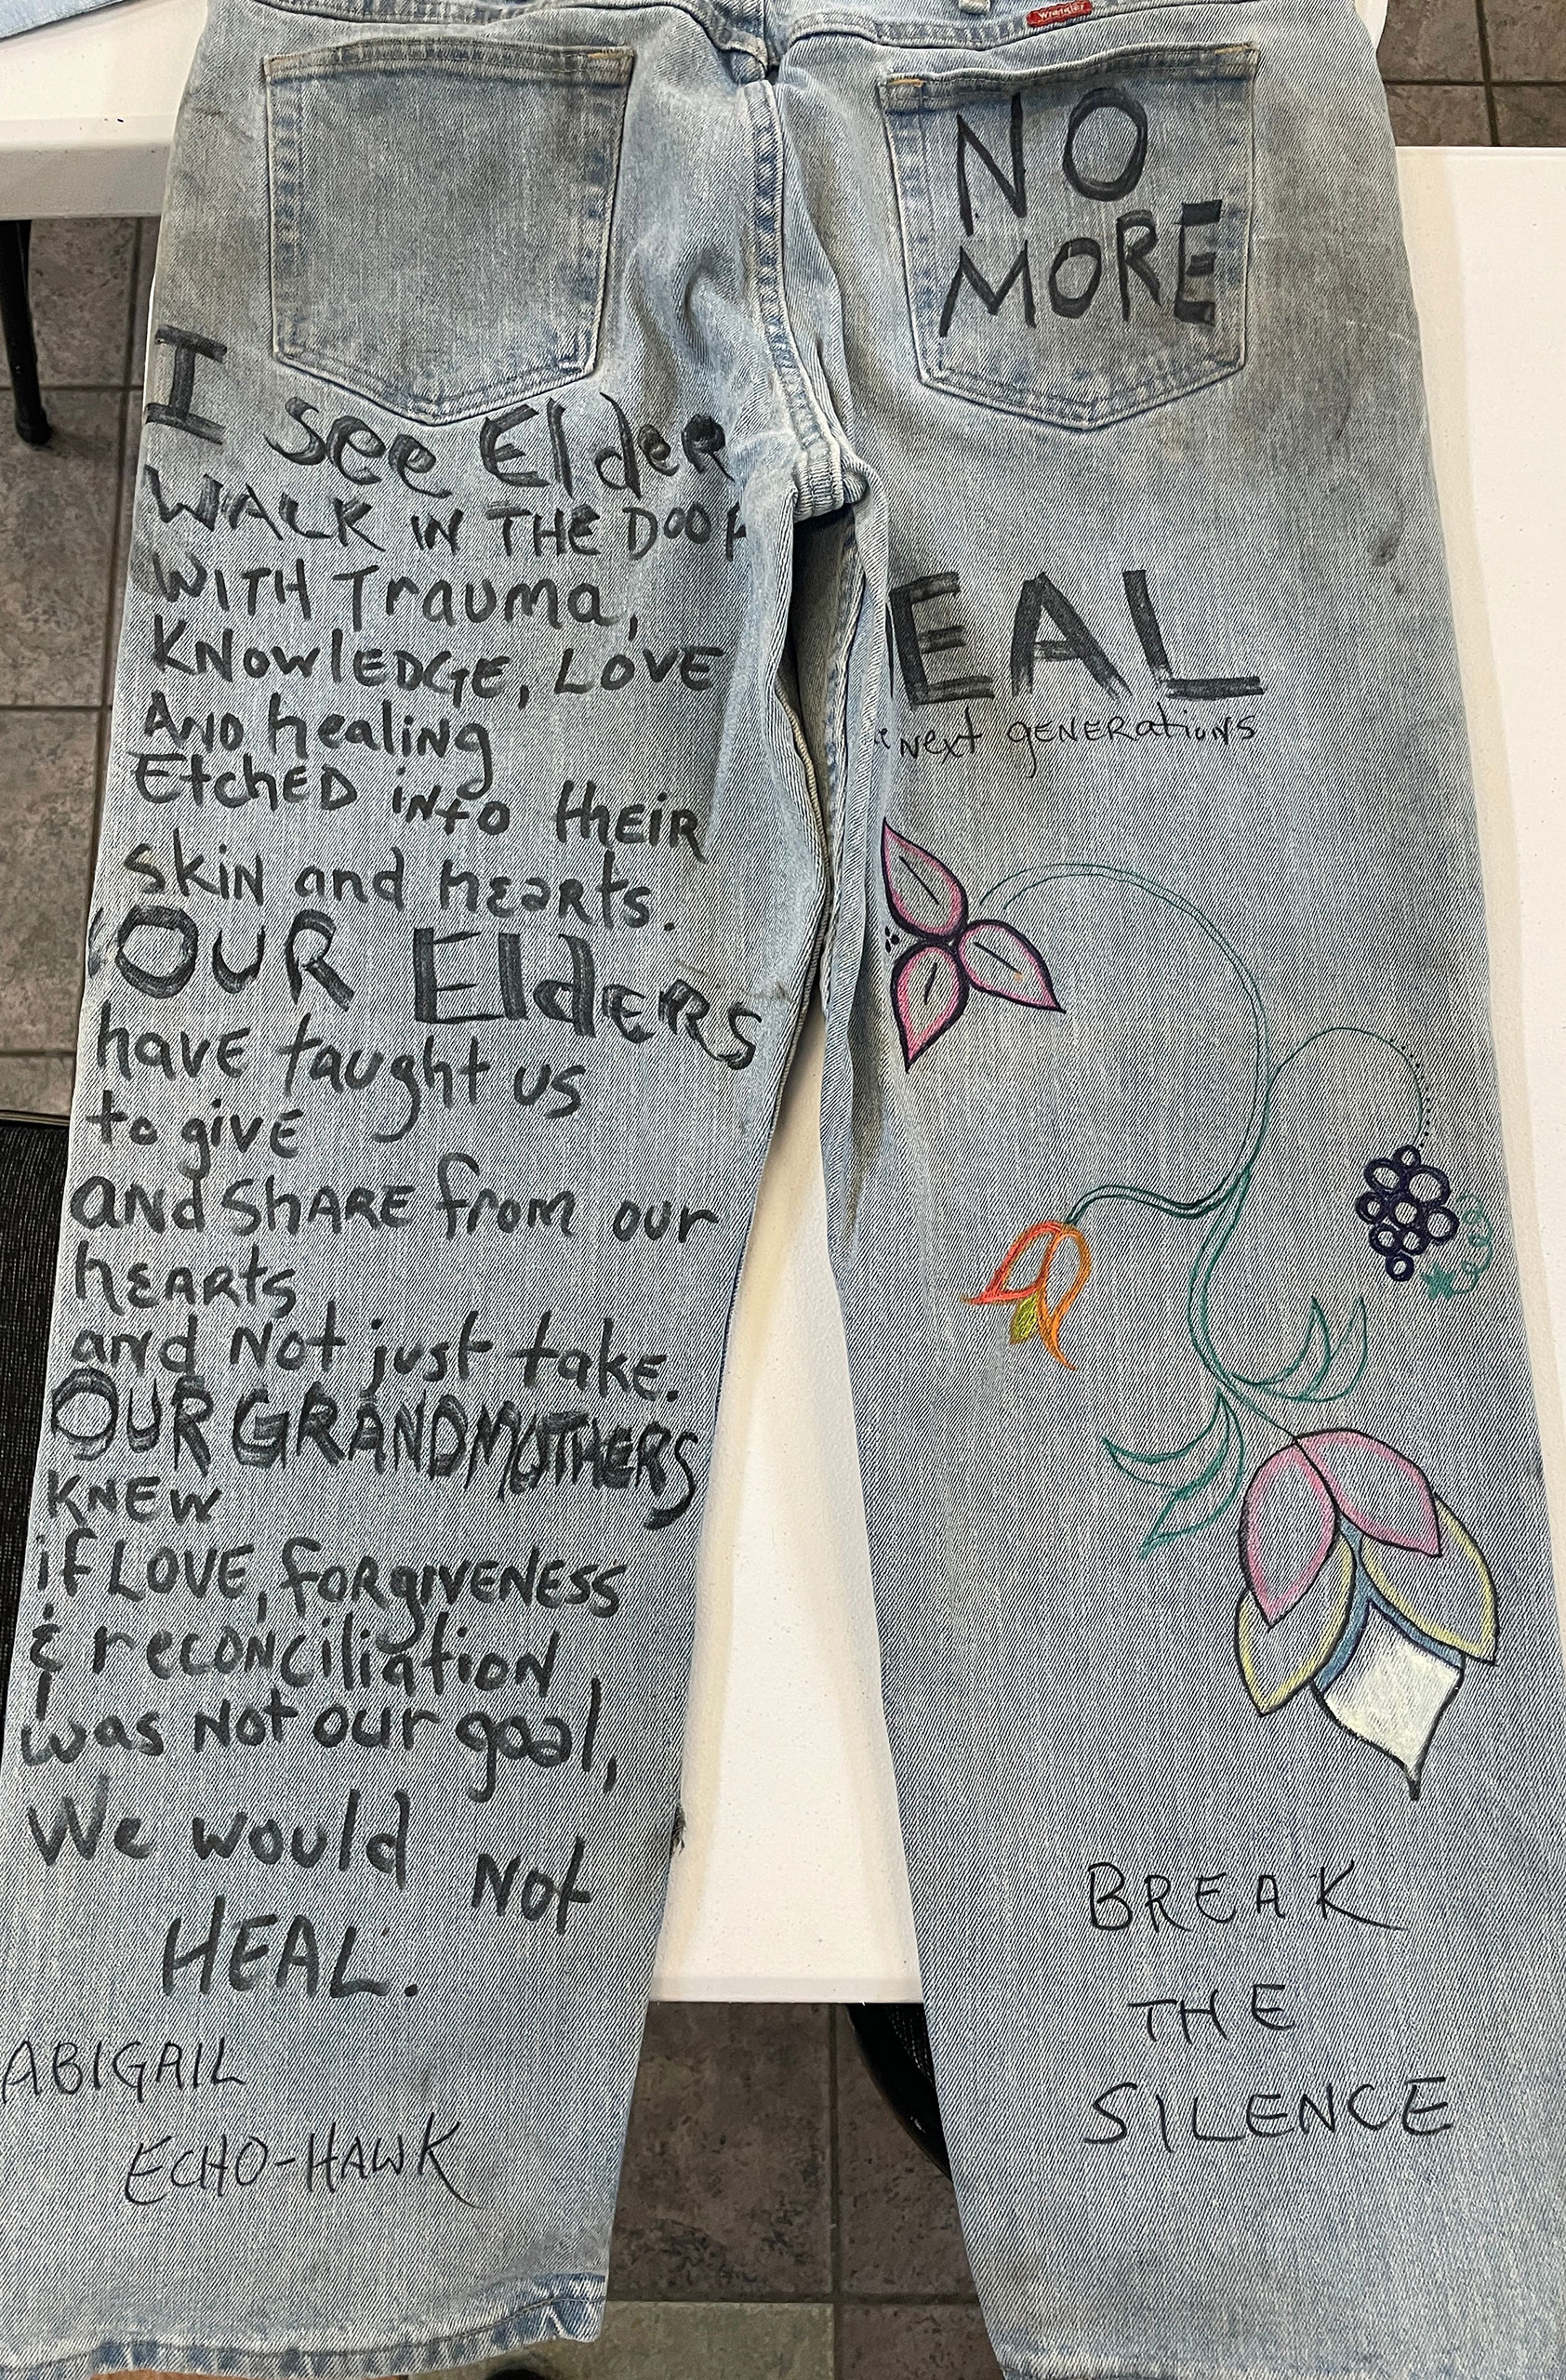 Wrangler
NO
MORE
I see Elder
WALK IN THE DOOr
WITH Trauma,
KNOWlEDGE, LOVE
AND healing
EtchED into thEIR
skin and hearts.
"OUR ElDERS
havE taught us
to givE
and SHARE from our
hEARTS
and Not just take.
OUR GRANDMOTHERS
KNEW
if LOVE, forgIVENESS
& reconciliation,
was not our goal,
We would not
HEAL.
ABIGAIL
ECHO-HAWK
EAL
next gENERations
BREAK
THE
SILENCE